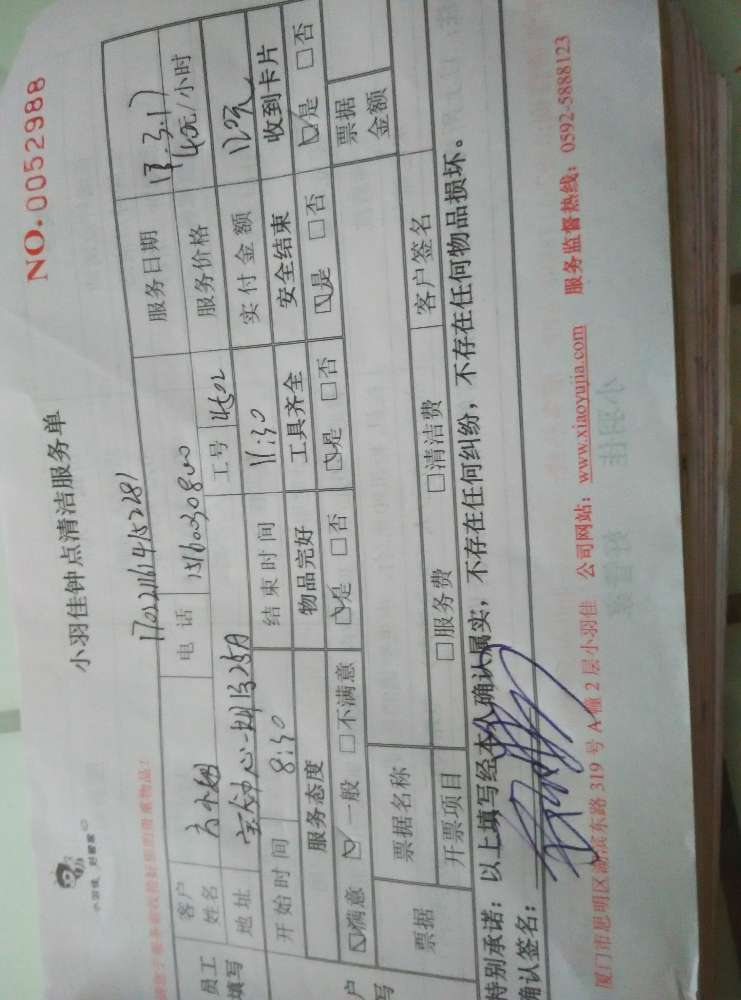 NO.0052988
小羽佳钟点清洁服务单
小羽佳，好管家
170221614152281
员工填写
客户姓名 电话 15160030800 服务日期 17.3.17
地址 工号 4502 服务价格 40元/小时
开始时间 8:30 结束时间 11:30 实付金额 120元
服务态度 物品完好 工具齐全 安全结束 收到卡片
☑满意 ☑一般 □不满意 ☑是 □否 ☑是 □否 ☑是 □否 ☑是 □否
票据 票据名称 票据金额
开票项目 □服务费 □清洁费 客户签名
特别承诺：以上填写经本人确认属实，不存在任何纠纷，不存在任何物品损坏。
确认签名：
厦门市思明区湖滨东路 319 号 A 幢 2 层小羽佳 公司网站：www.xiaoyujia.com 服务监督热线：0592-5888123